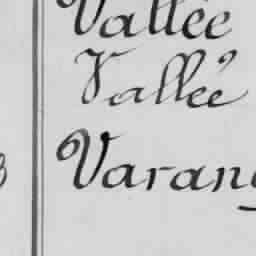 Vallée
Vallée
Varang